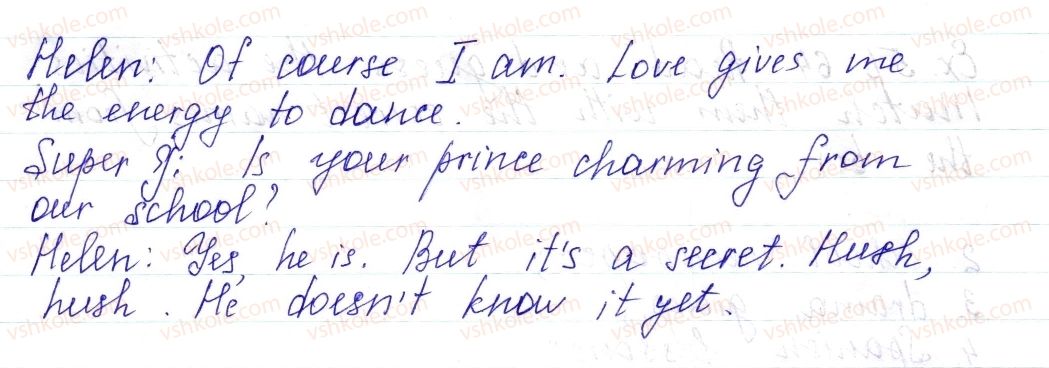 Helen: Of course I am. Love gives me
the energy to dance.
Super J: Is your prince charming from
our school?
Helen: Yes, he is. But it's a secret. Hush,
hush. He doesn't know it yet.
vshkole.com